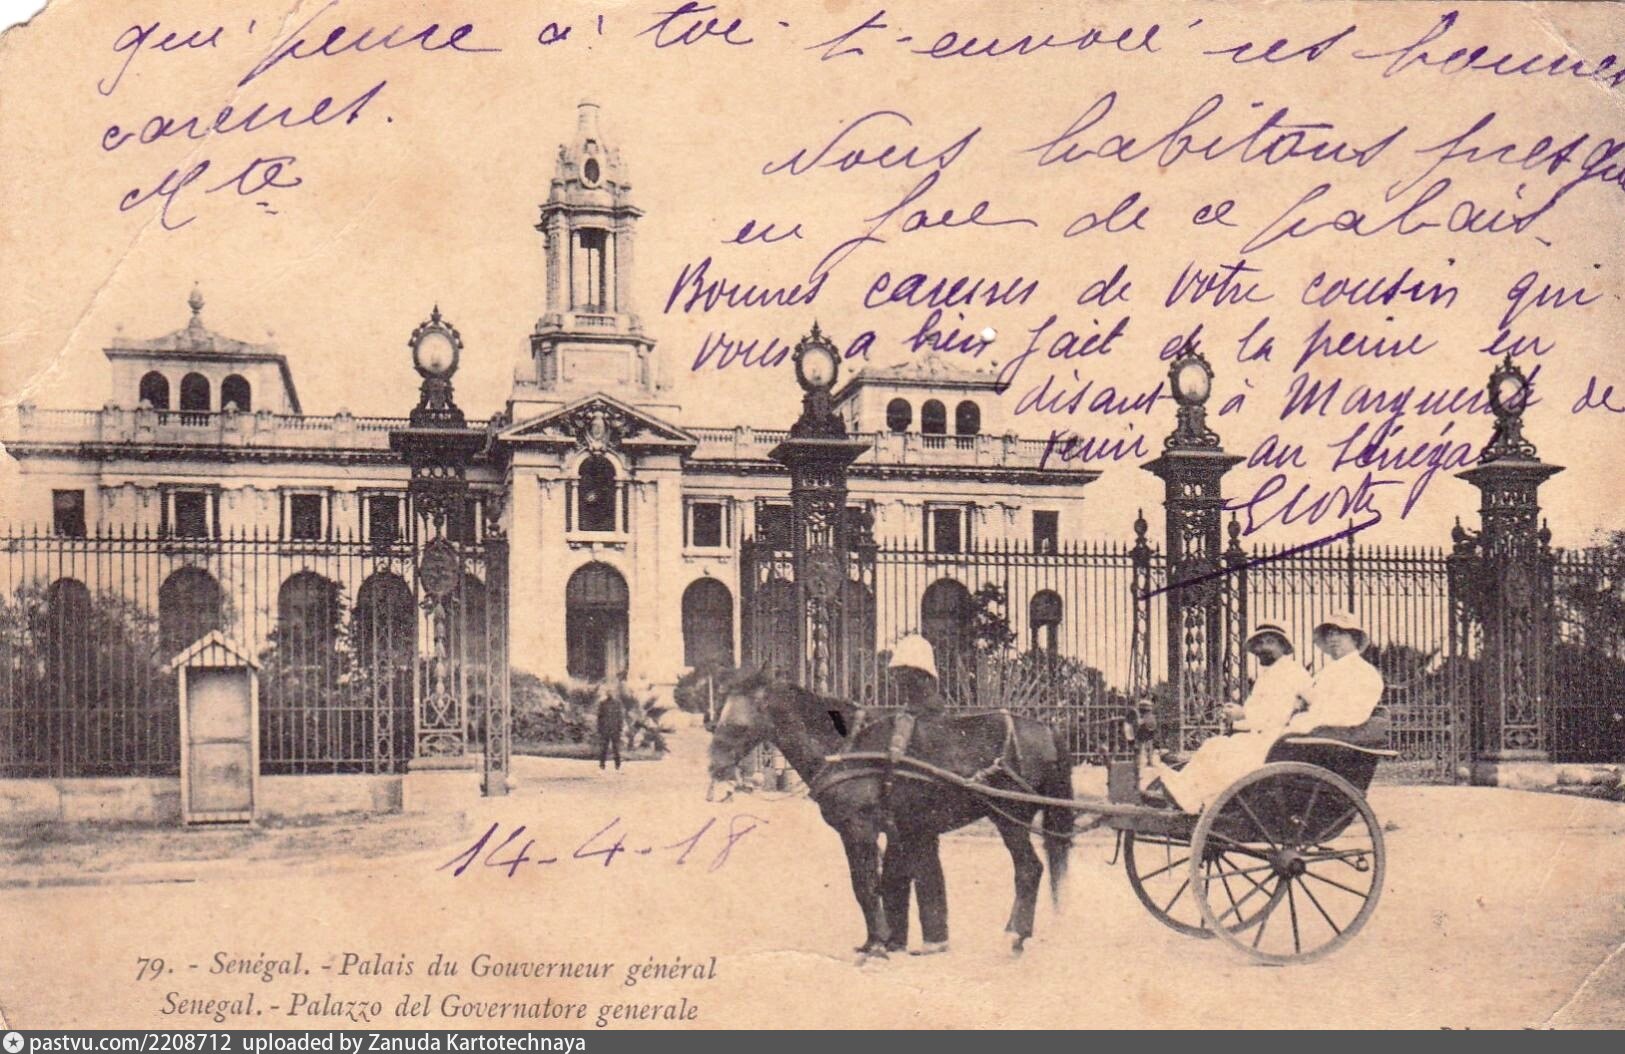 qui pense à toi t'envoie ses bonnes
caresses.
Mte
Nous habitons presque
en face de ce palais.
Bonnes caresses de votre cousin qui
vous a bien fait de la peine en
disant à Marguerite de
venir au Sénégal
14-4-18
79. - Senégal. - Palais du Gouverneur général
Senegal. - Palazzo del Governatore generale
pastvu.com/2208712 uploaded by Zanuda Kartotechnaya